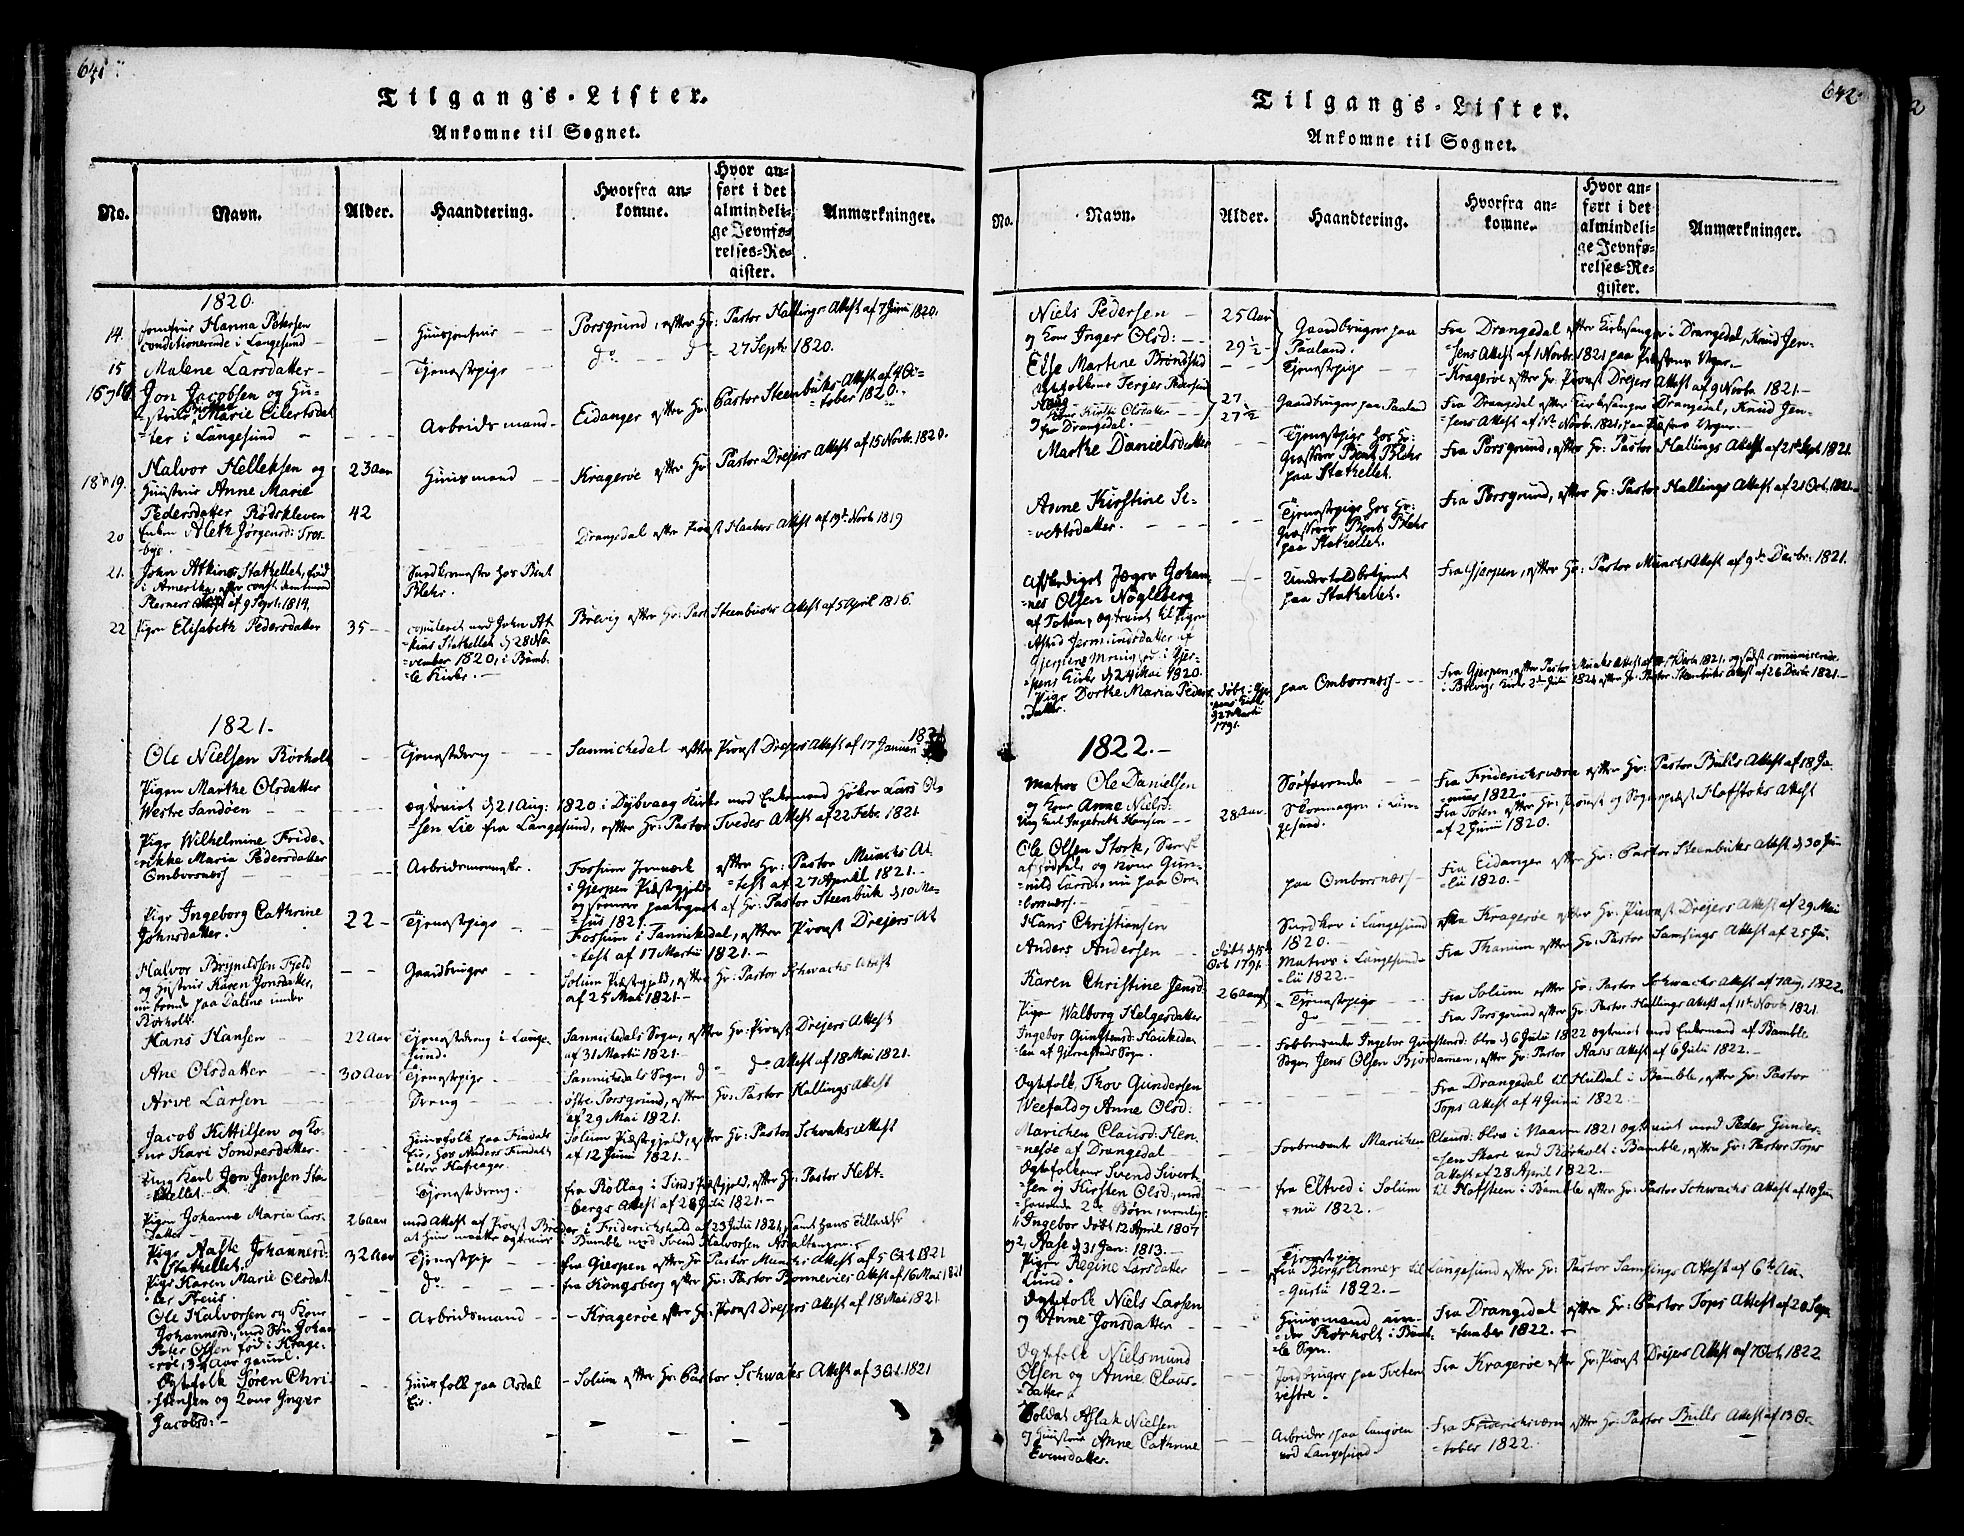 641
Tilgangs-Lister.
Ankomne til Sognet.
No.
Navn.
Alder.
Haandtering.
Hvorfra an-
komne.
Hvor an-
ført i det
almindeli-
ge Jevnfø-
relses-Re-
gister.
Anmærkninger.
1820.
14. Jomfrue Hanna Petersen
conditionerende i Langesund
Huusjomfrue
Porsgrund, efter Hr: Pastor Hallings Attest af 7 Junii 1820.
15 Malene Larsdatter - Tjenestepige - do - do - 27 Septr 1820.
Jon Jacobsen og Hu-
strue Marie Eilertsdat-
ter i Langesund
Arbeidsmand
Eidanger efter Hr: Pastor Steenbuks Attest af 4 Oc-
tober 1820.
18 19. Halvor Helleksen og 23 Aar
Huustrue Anne Marie
Pedersdatter Rødskleven 42
Huusmand
Kragerøe efter Hr: Pastor Drejers Attest af 15 Novbr. 1820.
20 Enken Aleth Jørgensd: Tros-
bye.
Drangedal efter Provst Attest af 19de Novb 1819
21. John Atkins, Stathellet, fød
i Amerika,
af 9 Sept. 1814.
hos Bent
Blehr.
22 Pigen Elisabeth Pedersdatter 35
copuleret med John At-
kins Stathellet d 28 No-
vember 1820, i Bamb-
le Kirke.
Brevig efter Hr: Past: Steenbuks Attest af 5 April 1816.
1821.
Ole Nielsen Rørholt Tjenestedreng
Sannickedal efter Provst Drejers Attest af 17 Januari 1821
Pigen Marthe Olsdatter
Westre Sandøen
ægteviet d 21 Aug: 1820 i Dybvaag Kirke med Enkemand Høker Lars Ol-
sen Lie fra Langesund, efter Hr: Pastor Tvedes Attest af 22 Febr. 1821.
Pige Wilhelmine Fride-
rikke Maria Pedersdatter
Ombordsnæs
Arbeidsmenneske.
Fossum Jernværk efter Hr: Pastor Munchs At-
i Gjerpen Præstegjeld, test af 27 April 1821.
af Hr: Pastor Steenbuk d 10 Ma-
1821.
Pige Ingeborg Cathrine
Johnsdatter. 22 Tjenestepige
Fossum i Sannickedal, efter Provst Drejers At-
test af 17 Martii 1821.
Halvor Brynildsen Fjeld
og Hustrue Karen Jonsdatter,
nu boende paa Dalene under
Rørholt.
Gaardbruger
Solum Præstegjeld, efter Hr: Pastor Schwachs Attest
af 25 Mai 1821.
Hans Hansen 22 Aar Tjenestedreng i Lange-
sund.
Sannickedals Sogn, efter Hr: Provst Drejers Attest
af 31 Martii 1821.
Ane Olsdatter 30 Aar Tjenestepige
Sannickdals Sogn, d do Attest af 18 Mai 1821.
Arve Larsen Dreng
østre Porsgrund, efter Hr: Pastor Hallings Attest
af 29 Mai 1821.
Jacob Kittilsen og Ko-
ne Kari Sondresdatter.
Huusfolk paa Findals
Eie, hos Anders Findal
eller Hafsager.
Solum Præstegjeld, efter Hr: Pastor Schwaks Attest
af 12 Junii 1821.
Ung Karl Jon Jonsen Sta-
thellet
Tjenestedreng.
fra Rollag i Præstgjeld, efter Hr: Pastor Helt-
bergs Attest af 28 Julii 1821.
Pigen Johanne Maria Lars-
datter 26 Aar
med Attest af Provst i Friderichshald af 23 Julii 1821, samt hans Tilladelse
at hun maatte ægtevies i Bamble med Svend Halvorsen
Pige Aaste Johannesd:
Stathellet. 32 Aar Tjenestepige
fra Gjerpen efter Hr: Pastor Munchs Attest af 5 Oct. 1821
Pige Karen Marie Olsdat-
ter do
fra Kongsberg efter Hr: Pastor Bonnevies Attest af 16 Mai 1821
Ole Halvorsen og Kone
Johannesd:, med Søn Johan
Peter Olsen fød i Krage-
røe, 3 Aar gaml.
Arbeidsmand
Kragerøe efter Hr: Provst Drejers Attest af 18 Mai 1821
Ægtefolk Søren Chri-
stensen og Kone Inger
Jacobsd:
Huusfolk paa Asdal
Eie.
Solum efter Hr: Pastor Schwachs Attest af 3 Oct. 1821
642
Tilgangs-Lister.
Ankomne til Sognet.
No.
Navn.
Alder.
Haandtering.
Hvorfra an-
komne.
Hvor an-
ført i det
almindeli-
ge Jevnfø-
relses-Re-
gister.
Anmærkninger.
Niels Pedersen 25 Aar
og Kone Inger Olsd: 29 1/2
Gaardbruger paa
Paaland.
Fra Drangedal efter Kirkesanger i Drangedal, Knud Jen-
sens Attest af 1 Novbr. 1821 paa Præstens Vegne.
Else Martine Brøndstad Tjenestepige
Kragerøe efter Hr: Provst Drejers Attest af 9 Novbr. 1821.
Terjes Pedersen 27
Kone Kirsti Olsdatter 27 1/2
fra Drangedal.
Gaardbruger paa Paaland
Fra Drangedal efter Kirkesanger i Drangedal, Knud Jen-
sens Attest af 1te Novbr. 1821 paa Præstens Vegne.
Marthe Danielsdatter
Tjenestepige hos Hr:
Bent Blehr
paa Stathellet.
Fra Porsgrund, efter Hr: Pastor Hallings Attest af 21de Sept. 1821.
Anne Kirstine Si-
vertsdatter.
Tjenestepige hos Hr:
Bent Blehr
paa Stathellet.
Fra Porsgrund, efter Hr: Pastor Hallings Attest af 21 Oct. 1821.
Afskediget Jæger Johan-
nes Olsen Nøglberg
af Toten, ægteviet til Pigen
Astrid Jermundsdatter af
Gjerpens Menighed i Gjer-
pens Kirke d 24 Mai 1820.
Undertoldbetjent
paa Stathellet.
Fra Gjerpen, efter Hr: Pastor Munchs Attest af 9de Decbr. 1821.
Pige Dorthe Maria Peders-
datter.
døbt i Gjer-
pens Kirke
d 27 Martii
1791.
paa Ombordsnæs
Fra Gjerpen, efter Pastor Munks Attest af Decb 1821, og sidst communicerende
i Brevigs Kirke 2den Julii 1821 efter Hr: Pastor Steenbuks Attest af 26 Decbr 1821.
1822.
Matros Ole Danielsen
og Kone Anne Nielsd:
Søefarende
Fra Friderichsværn efter Hr: Pastor Bulls Attest af 18 Ja-
nuar 1822.
Ung Karl Ingebreth Hansen 28 Aar.
i Lan-
gesund.
Fra Toten efter Hr: Provst og Sognepræst Hofstocks Attest
af 2 Junii 1820.
Ole Olsen Stork,
og Kone Gun-
nild Larsd:, nu paa Om-
borsnæs.
paa Ombordsnæs
Fra Eidanger efter Hr: Pastor Steenbuks Attest d 30 Jun-
ii 1820.
Hans Christiansen
i Langesund
1820.
efter Kragerøe efter Hr: Provst Drejers Attest af 29 Mai
Anders Andersen
døbt d 15
Oct. 1791.
Matros i Langesund
Fra Thanum efter Hr: Pastor Samsings Attest af 25 Ju-
lii 1822.
Karen Christine Jensd: 26 Aar Tjenestepige
Fra Solum efter Hr: Pastor Schwachs Attest af 7 Aug. 1822.
Pige Walborg Helgesdatter do
Fra Porsgrund efter Hr: Pastor Hallings Attest af 11te Novb. 1821.
Ingebor Gunstensd: Haukeda-
len af Sogn.
Forbenævnte Ingebor Gunstensd: blev d 6 Julii 1822 ægteviet med Enkemand af Bamble
Sogn, Jens Olsen Bjordamen, efter Hr: Pastor Aas's Attest af 6 Julii 1822.
Ægtefolk, Thov Gundersen
Weefald og Anne Olsd:
Fra Drangedal til Huldal i Bamble, efter Hr: Pastor
Tops Attest af 4 Junii 1822.
Marichen Clausd: Hen-
neseie af Drangedal
Forbenævnte Marichen Clausd: blev i Vaaren 1821 ægteviet med Peder Gunder-
sen Skare ved Rørholt i Bamble, efter Hr: Pastor Tops
Attest af 28 April 1822.
Ægtefolkene Svend Sivert-
sen og Kirsten Olsd:, med-
havende 2de Børn, nemlig
1, Ingebor døbt 12 April 1807
og 2, Aase d 31 Jan: 1813.
fra Eltved i Solum til Hafsteen i Bamble efter Hr: Pastor Schwachs Attest af 10 Ju-
nii 1822.
Pige Regine Larsdatter
Lund.
Tjenestepige
fra Bergs Annex til Langesund efter Hr: Pastor Samsings Attest af 6te Au-
gustii 1822.
Ægtefolk Niels Larsen
og Anne Jonsdatter
Huusmand un-
der Rørholt i Bamb-
le Sogn.
Fra Drangedal efter Hr: Pastor Tops Attest af 20 Sep-
tember 1822.
Ægtefolk Nielsmund
Olsen og Anne Claus-
datter
Jordbruger paa Tveten
vestre.
Fra Kragerøe efter Hr: Provst Drejers Attest af 7 Oct. 1822
Soldat Aslak Nielsen
og Huustrue Anne Cathrine
Evensdatter.
Arbeider paa Langøen
ved Langesund
Fra Friderichsværn efter Hr: Pastor Bulls Attest af 13 Oc-
tober 1822.